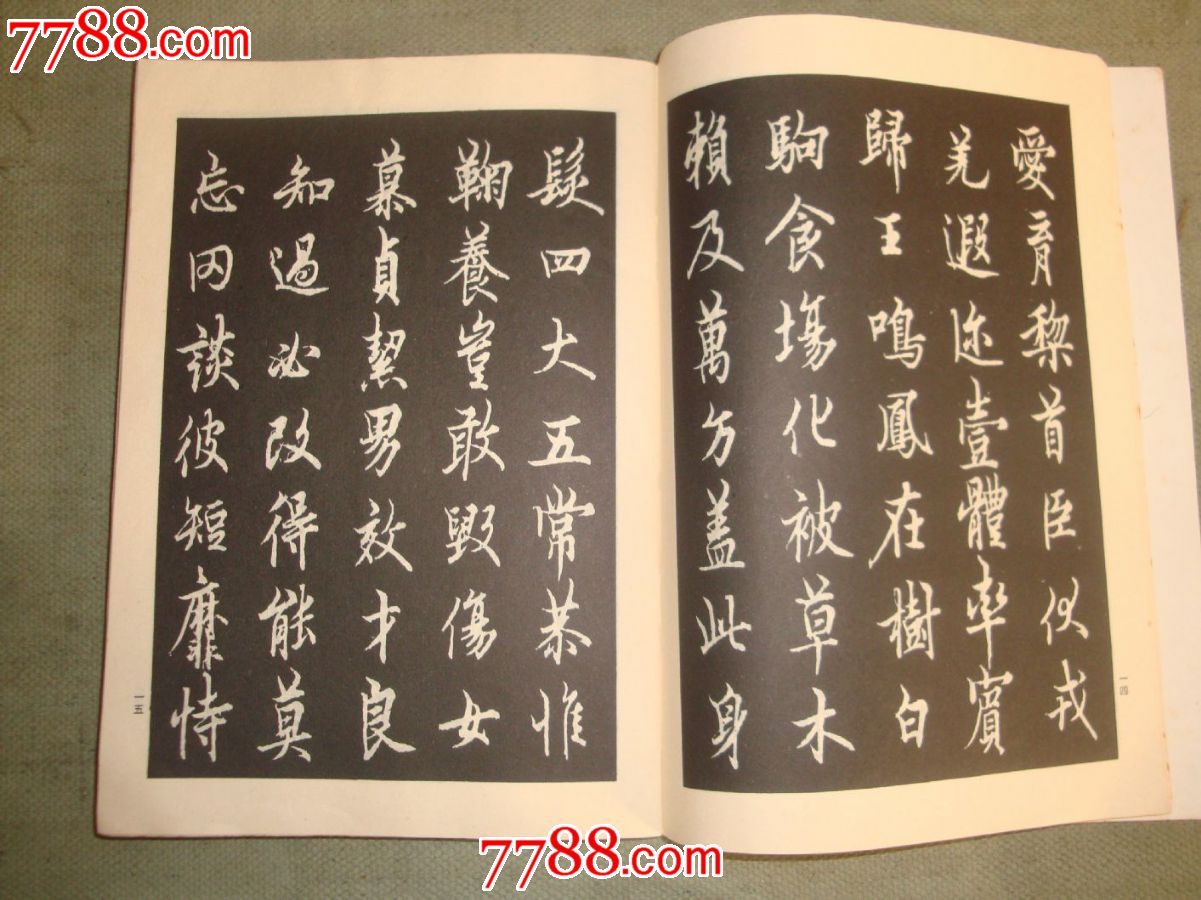 7788.com
愛育黎首臣伏戎
羌遐迩壹體率賓
歸王鳴鳳在樹白
駒食場化被草木
賴及萬方蓋此身
一四
髮四大五常恭惟
鞠養豈敢毀傷女
慕貞絜男效才良
知過必改得能莫
忘罔談彼短靡恃
一五
7788.com
7788.com